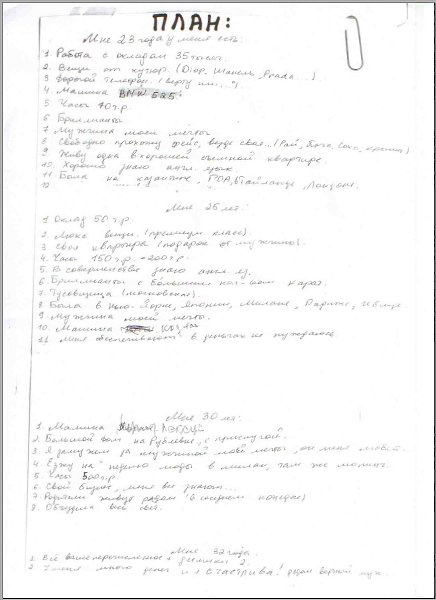 ПЛАН:
Мне 23 года у меня есть:
1. Работа с окладом 35 тысяч.
2. Вещи от кутюр. (Dior, Шанель, Prada...)
3. Дорогой телефон. (верту или...)
4. Машина BMW 525i
5. Часы 70 т.р.
6. Бриллианты
7. Мужчина моей мечты
8. Свободно прохожу фейс, везде своя... (Рай,
9. Живу одна в хорошей съемной квартире.
10. Хорошо знаю англ. язык.
11. Была на казантипе, ГОА, Тайланде, Лондоне.
12
Мне 25 лет:
1. Оклад 50 т.р.
2. Люкс вещи. (премиум класс).
3. Своя квартира (подарок от мужчины).
4. Часы 150 т.р. - 200 т.р.
5. В совершенстве знаю англ. яз.
6. Бриллианты с большим кол-вом карат.
7. Тусовщица (московская).
8. Была в Нью-Йорке, Японии, Милане, Париже, Ибице
9. Мужчина моей мечты.
10. Машина
11. Меня обеспечивают в деньгах не нуждаюсь.
Мне 30 лет:
1. Машина
2. Большой дом на Рублевке, с прислугой.
3. Я замужем за мужчиной моей мечты, он меня любит.
4. Езжу на неделю моды в милан, там же
5. Часы 500 т.р.
6. Свой бизнес, меня все знают...
7. Родители живут рядом (в соседнем коттедже)
8. Объездила весь свет.
Мне 32 года.
1. Всё вышеперечисленное +
2. У меня много денег и я счастлива! рядом верный муж.